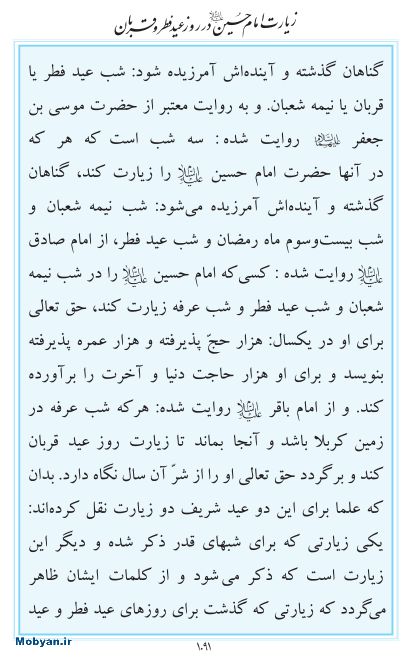 زیارت امام حسین علیه‌السلام در روز عید فطر و قربان
گناهان گذشته و آینده‌اش آمرزیده شود: شب عید فطر یا
قربان یا نیمه شعبان. و به روایت معتبر از حضرت موسی بن
جعفر علیهماالسلام روایت شده: سه شب است که هر که
در آنها حضرت امام حسین علیه‌السلام را زیارت کند، گناهان
گذشته و آینده‌اش آمرزیده می‌شود: شب نیمه شعبان و
شب بیست‌وسوم ماه رمضان و شب عید فطر، از امام صادق
علیه‌السلام روایت شده : کسی‌که امام حسین علیه‌السلام را در شب نیمه
شعبان و شب عید فطر و شب عرفه زیارت کند، حق تعالی
برای او در یکسال: هزار حجّ پذیرفته و هزار عمره پذیرفته
بنویسد و برای او هزار حاجت دنیا و آخرت را برآورده
کند. و از امام باقر علیه‌السلام روایت شده: هرکه شب عرفه در
زمین کربلا باشد و آنجا بماند تا زیارت روز عید قربان
کند و برگردد حق تعالی او را از شرّ آن سال نگاه دارد. بدان
که علما برای این دو عید شریف دو زیارت نقل کرده‌اند:
یکی زیارتی که برای شبهای قدر ذکر شده و دیگر این
زیارت است که ذکر می‌شود و از کلمات ایشان ظاهر
می‌گردد که زیارتی که گذشت برای روزهای عید فطر و عید
۱۰۹۱
Mobyan.ir